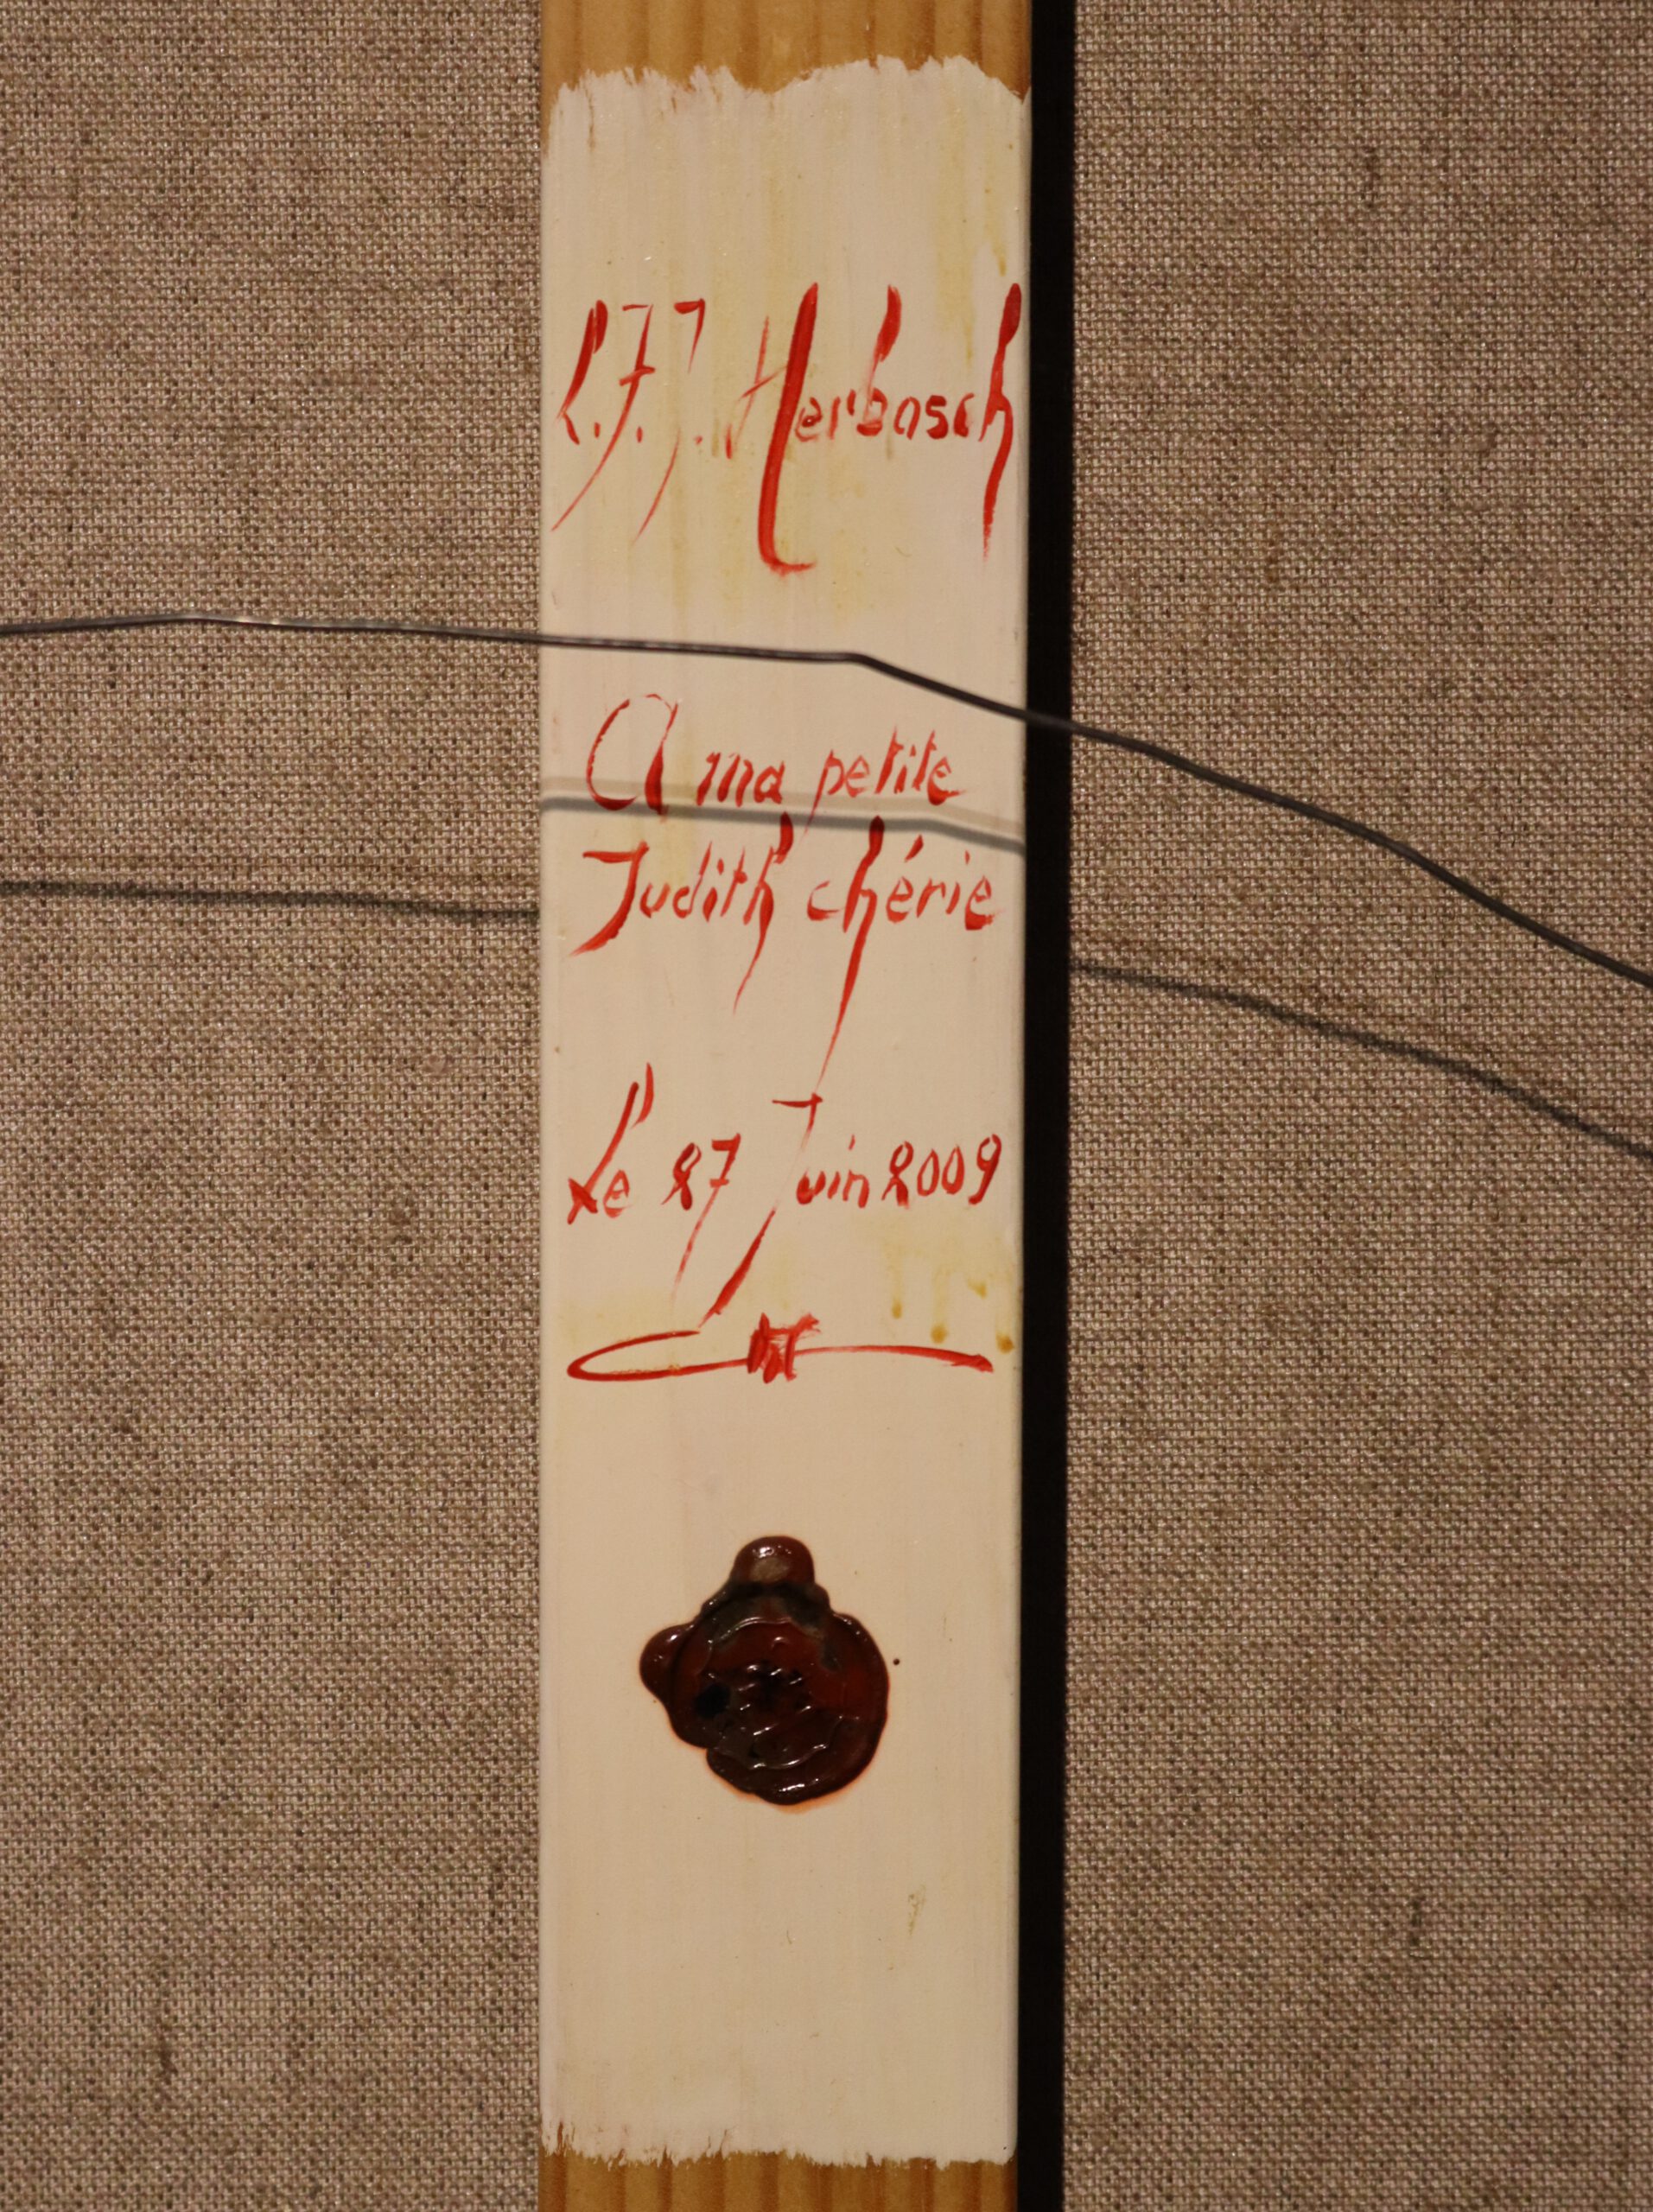 L.F.J. Herbosch
A ma petite
Judith chérie
Le 27 Juin 2009